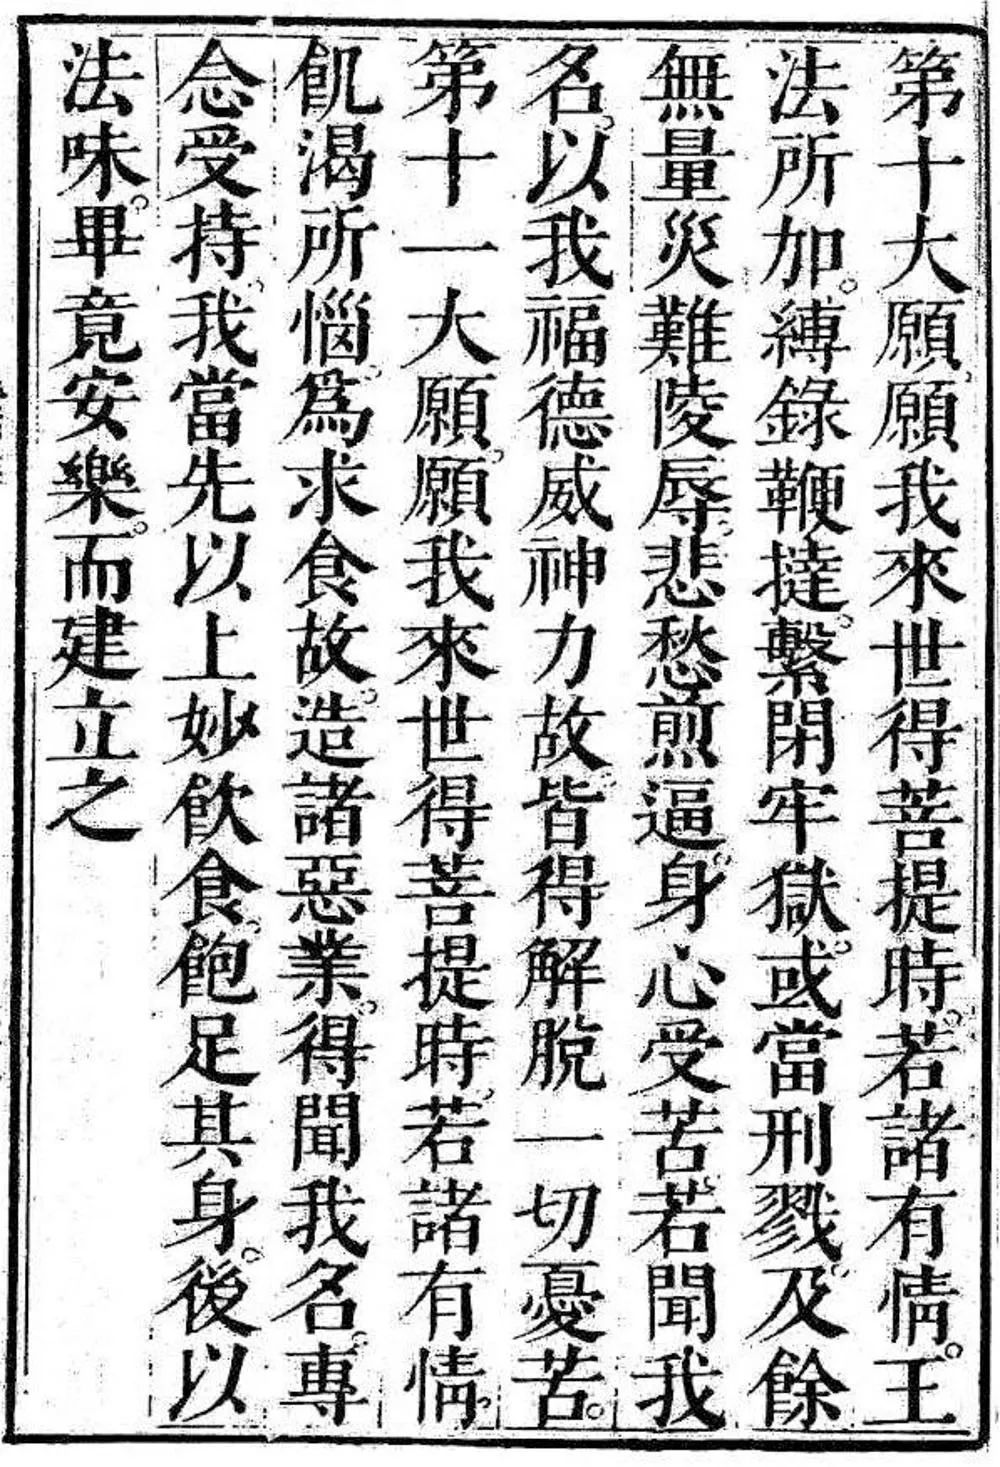 第十大願。願我來世得菩提時。若諸有情。王
法所加。縛錄鞭撻。繫閉牢獄。或當刑戮。及餘
無量災難陵辱。悲愁煎逼。身心受苦。若聞我
名。以我福德威神力故。皆得解脫一切憂苦。
第十一大願。願我來世得菩提時。若諸有情。
飢渴所惱。為求食故。造諸惡業。得聞我名。專
念受持。我當先以上妙飲食。飽足其身。後以
法味。畢竟安樂。而建立之